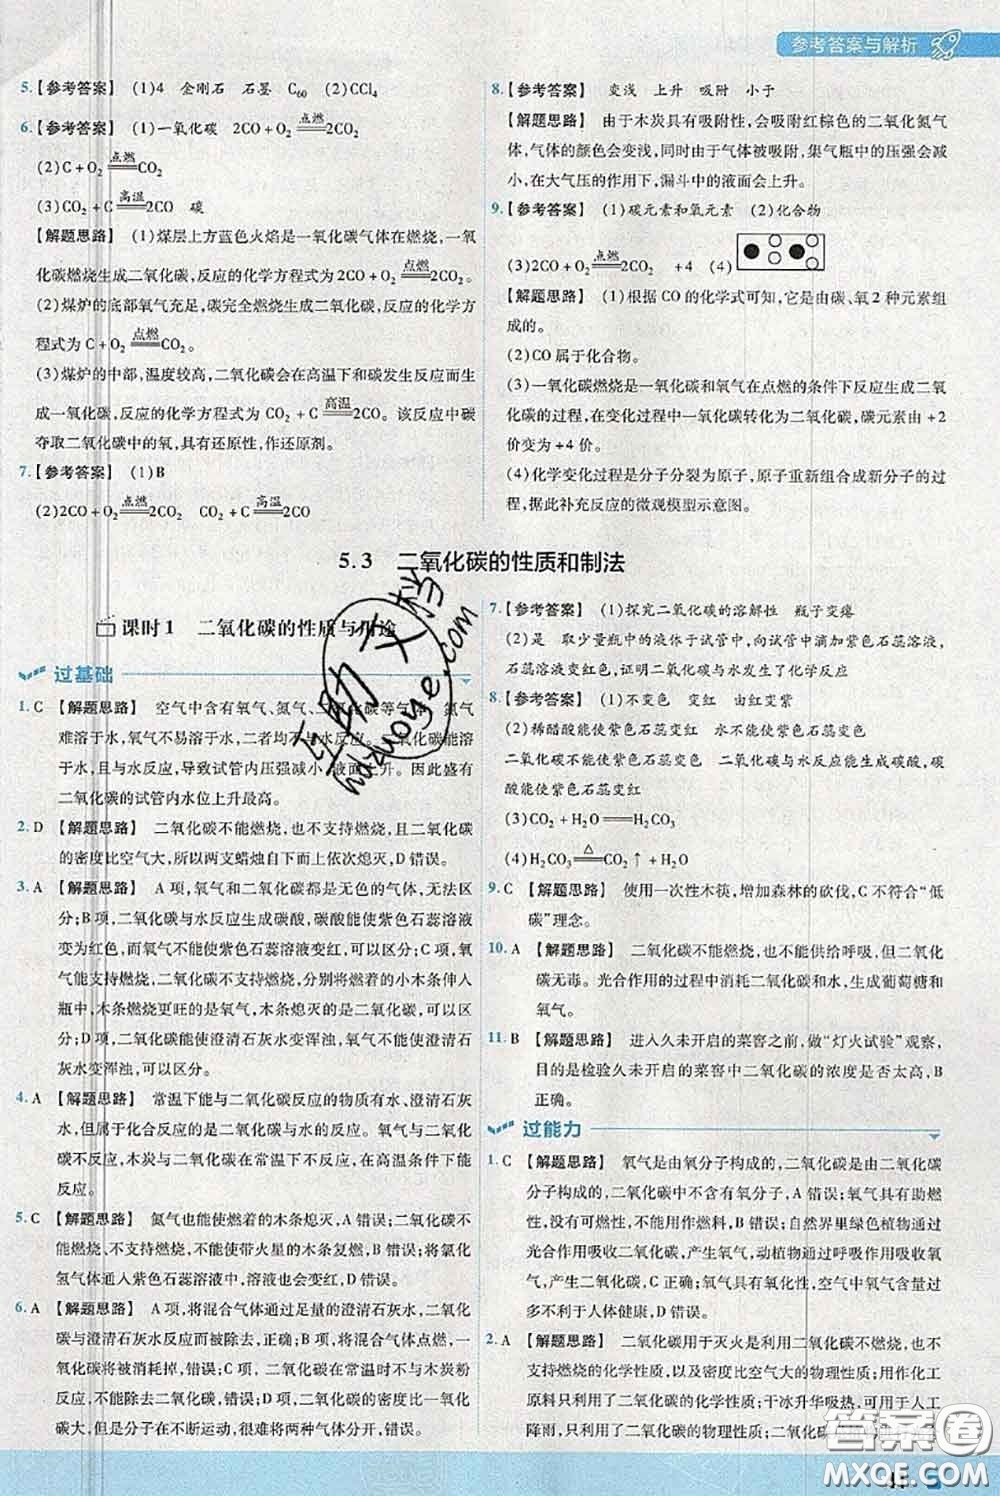 参考答案与解析
5.【参考答案】 (1)4 金刚石 石墨 C60 (2)CCl4
6.【参考答案】 (1)一氧化碳 2CO+O2 点燃 2CO2
(2)C+O2 点燃 CO2
(3)CO2+C 高温 2CO 碳
【解题思路】 (1)煤层上方蓝色火焰是一氧化碳气体在燃烧,一氧
化碳燃烧生成二氧化碳,反应的化学方程式为2CO+O2 点燃 2CO2。
(2)煤炉的底部氧气充足,碳完全燃烧生成二氧化碳,反应的化学方
程式为 C+O2 点燃 CO2。
(3)煤炉的中部,温度较高,二氧化碳会在高温下和碳发生反应而生
成一氧化碳,反应的化学方程式为 CO2+C 高温 2CO。该反应中碳
夺取二氧化碳中的氧,具有还原性,作还原剂。
7.【参考答案】 (1)B
(2)2CO+O2 点燃 2CO2 CO2+C 高温 2CO
8.【参考答案】 变浅 上升 吸附 小于
【解题思路】 由于木炭具有吸附性,会吸附红棕色的二氧化氮气
体,气体的颜色会变浅,同时由于气体被吸附,集气瓶中的压强会减
小,在大气压的作用下,漏斗中的液面会上升。
9.【参考答案】 (1)碳元素和氧元素 (2)化合物
(3)2CO+O2 点燃 2CO2 +4 (4)
【解题思路】 (1)根据 CO 的化学式可知,它是由碳、氧 2 种元素组
成的。
(2)CO 属于化合物。
(3)一氧化碳燃烧是一氧化碳和氧气在点燃的条件下反应生成二氧
化碳的过程,在变化过程中一氧化碳转化为二氧化碳,碳元素由 +2
价变为 +4 价。
(4)化学变化过程是分子分裂为原子,原子重新组合成新分子的过
程,据此补充反应的微观模型示意图。
5.3 二氧化碳的性质和制法
课时1 二氧化碳的性质与用途
过基础
1.C 【解题思路】 空气中含有氧气、氮气、二氧化碳等气体,氮气
难溶于水,氧气不易溶于水,二者均不与水反应。二氧化碳能溶
于水,且与水反应,导致试管内压强减小,液面上升。因此盛有
二氧化碳的试管内水位上升最高。
2.D 【解题思路】 二氧化碳不能燃烧,也不支持燃烧,且二氧化碳
的密度比空气大,所以两支蜡烛自下而上依次熄灭,D 错误。
3.A 【解题思路】 A 项,氧气和二氧化碳都是无色的气体,无法区
分;B 项,二氧化碳与水反应生成碳酸,碳酸能使紫色石蕊溶液
变为红色,而氧气不能使紫色石蕊溶液变红,可以区分;C 项,氧
气能支持燃烧,二氧化碳不支持燃烧,分别将燃着的小木条伸入
瓶中,木条燃烧更旺的是氧气,木条熄灭的是二氧化碳,可以区
分;D 项,二氧化碳能使澄清石灰水变浑浊,而氧气不能使澄清石
灰水变浑浊,可以区分。
4.A 【解题思路】 常温下能与二氧化碳反应的物质有水、澄清石灰
水,其中属于化合反应的是二氧化碳与水的反应。氧气与二氧化
碳不反应,木炭与二氧化碳在常温下不反应,在高温条件下能
反应。
5.C 【解题思路】 氮气也能使燃着的木条熄灭,A 错误;二氧化碳不
能燃烧、不支持燃烧,不能使带火星的木条复燃,B 错误;将氯化
氢气体通入紫色石蕊溶液中,溶液也会变红,D 错误。
6.A 【解题思路】 A 项,将混合气体通过足量的澄清石灰水,二氧化
碳与澄清石灰水反应而被除去,正确;B 项,将混合气体点燃,一
氧化碳将被消耗掉,错误;C 项,二氧化碳在常温时不与木炭粉
反应,不能除去二氧化碳,错误;D 项,二氧化碳的密度比一氧化
碳大,但是分子在不断运动,很难将两种气体分开,错误。
7.【参考答案】 (1)探究二氧化碳的溶解性 瓶子变瘪
(2)是 取少量瓶中的液体于试管中,向试管中滴加紫色石蕊溶液,
溶液变红色,证明二氧化碳与水发生了化学反应
8.【参考答案】 (1)不变色 变红 由红变紫
(2)稀醋酸能使紫色石蕊变红 水不能使紫色石蕊变色
二氧化碳不能使紫色石蕊变色 二氧化碳与水反应生成碳酸,碳
酸能使紫色石蕊变红
(3)CO2+H2O══H2CO3
(4)H2CO3 △ CO2↑+H2O
9.C 【解题思路】 使用一次性木筷,增加森林的砍伐,C 不符合“低
碳”理念。
10.A 【解题思路】 二氧化碳不能燃烧,也不能供给呼吸,但二氧化
碳无毒。光合作用的过程中消耗二氧化碳和水,生成葡萄糖和
氧气。
11.B 【解题思路】 进入久未开启的菜窖之前,做“灯火试验”观察,
目的是检验久未开启的菜窖中二氧化碳的浓度是否太高,B
正确。
过能力
1.C 【解题思路】 氧气是由氧分子构成的,二氧化碳是由二氧化碳
分子构成的,二氧化碳中不含有氧分子,A 错误;氧气具有助燃
性,没有可燃性,不能用作燃料,B 错误;自然界里绿色植物通过
光合作用吸收二氧化碳,产生氧气,动植物通过呼吸作用吸收氧
气,产生二氧化碳,C 正确;氧气具有氧化性,空气中氧气含量过
多不利于人体健康,D 错误。
2.A 【解题思路】 二氧化碳用于灭火是利用二氧化碳不燃烧,也不
支持燃烧的化学性质,以及密度比空气大的物理性质;用作化工
原料只利用了二氧化碳的化学性质;干冰升华吸热,可用于人工
降雨,只利用了二氧化碳的
互助文
huzuoye.com
答案圈
MXQE.COM